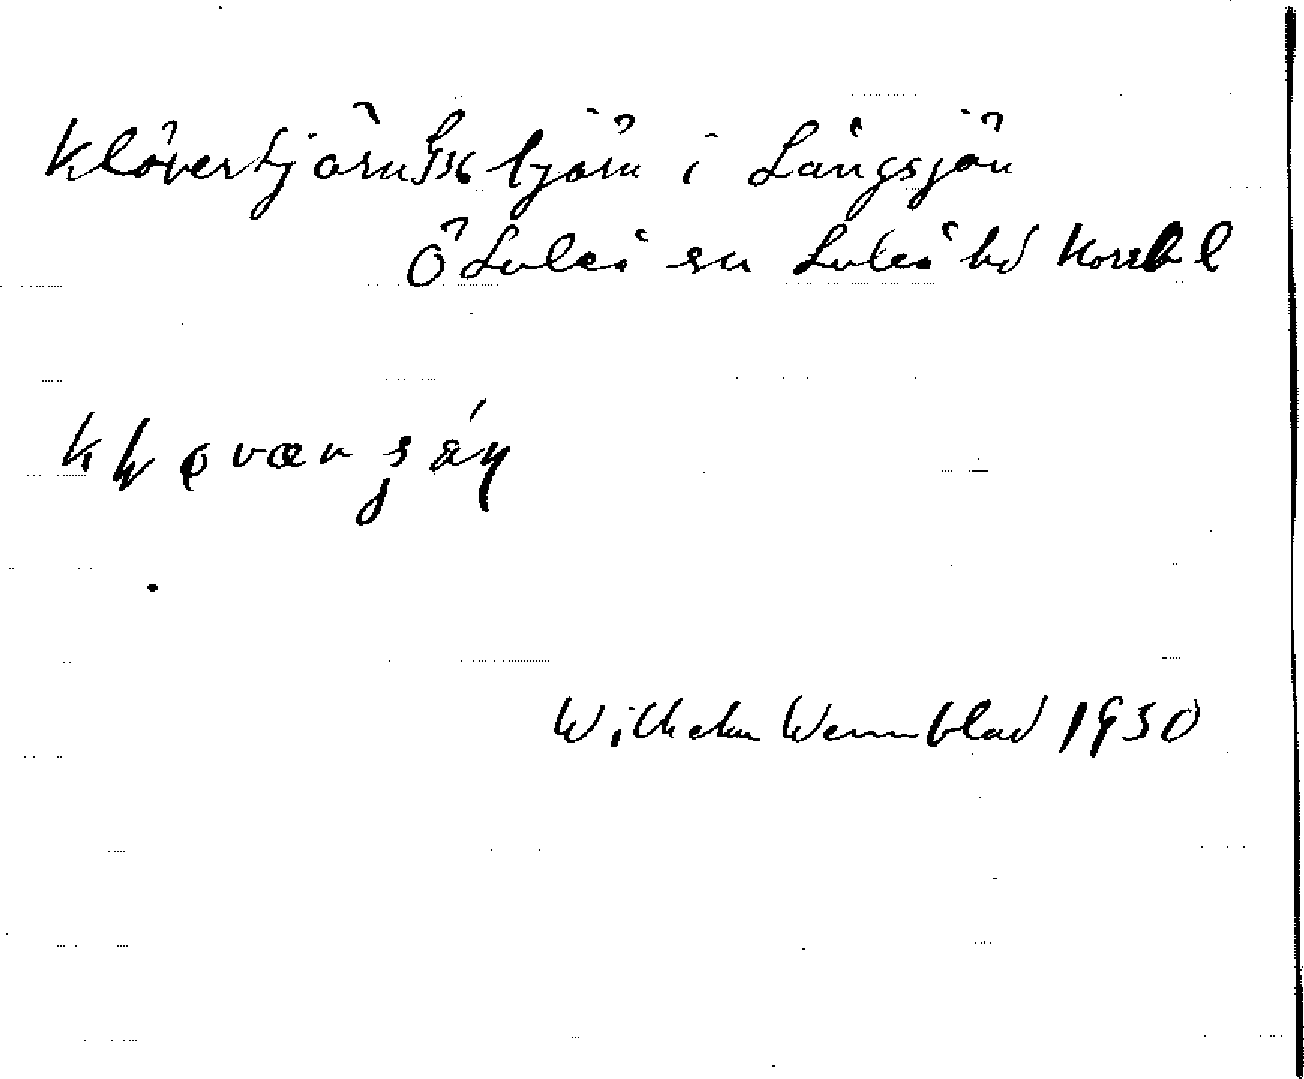 Klövertjärn Gsk tjärn i Långsjön
Ö Luleå sn Luleå hd Norrb l
Wilhelm Wennblad 1930